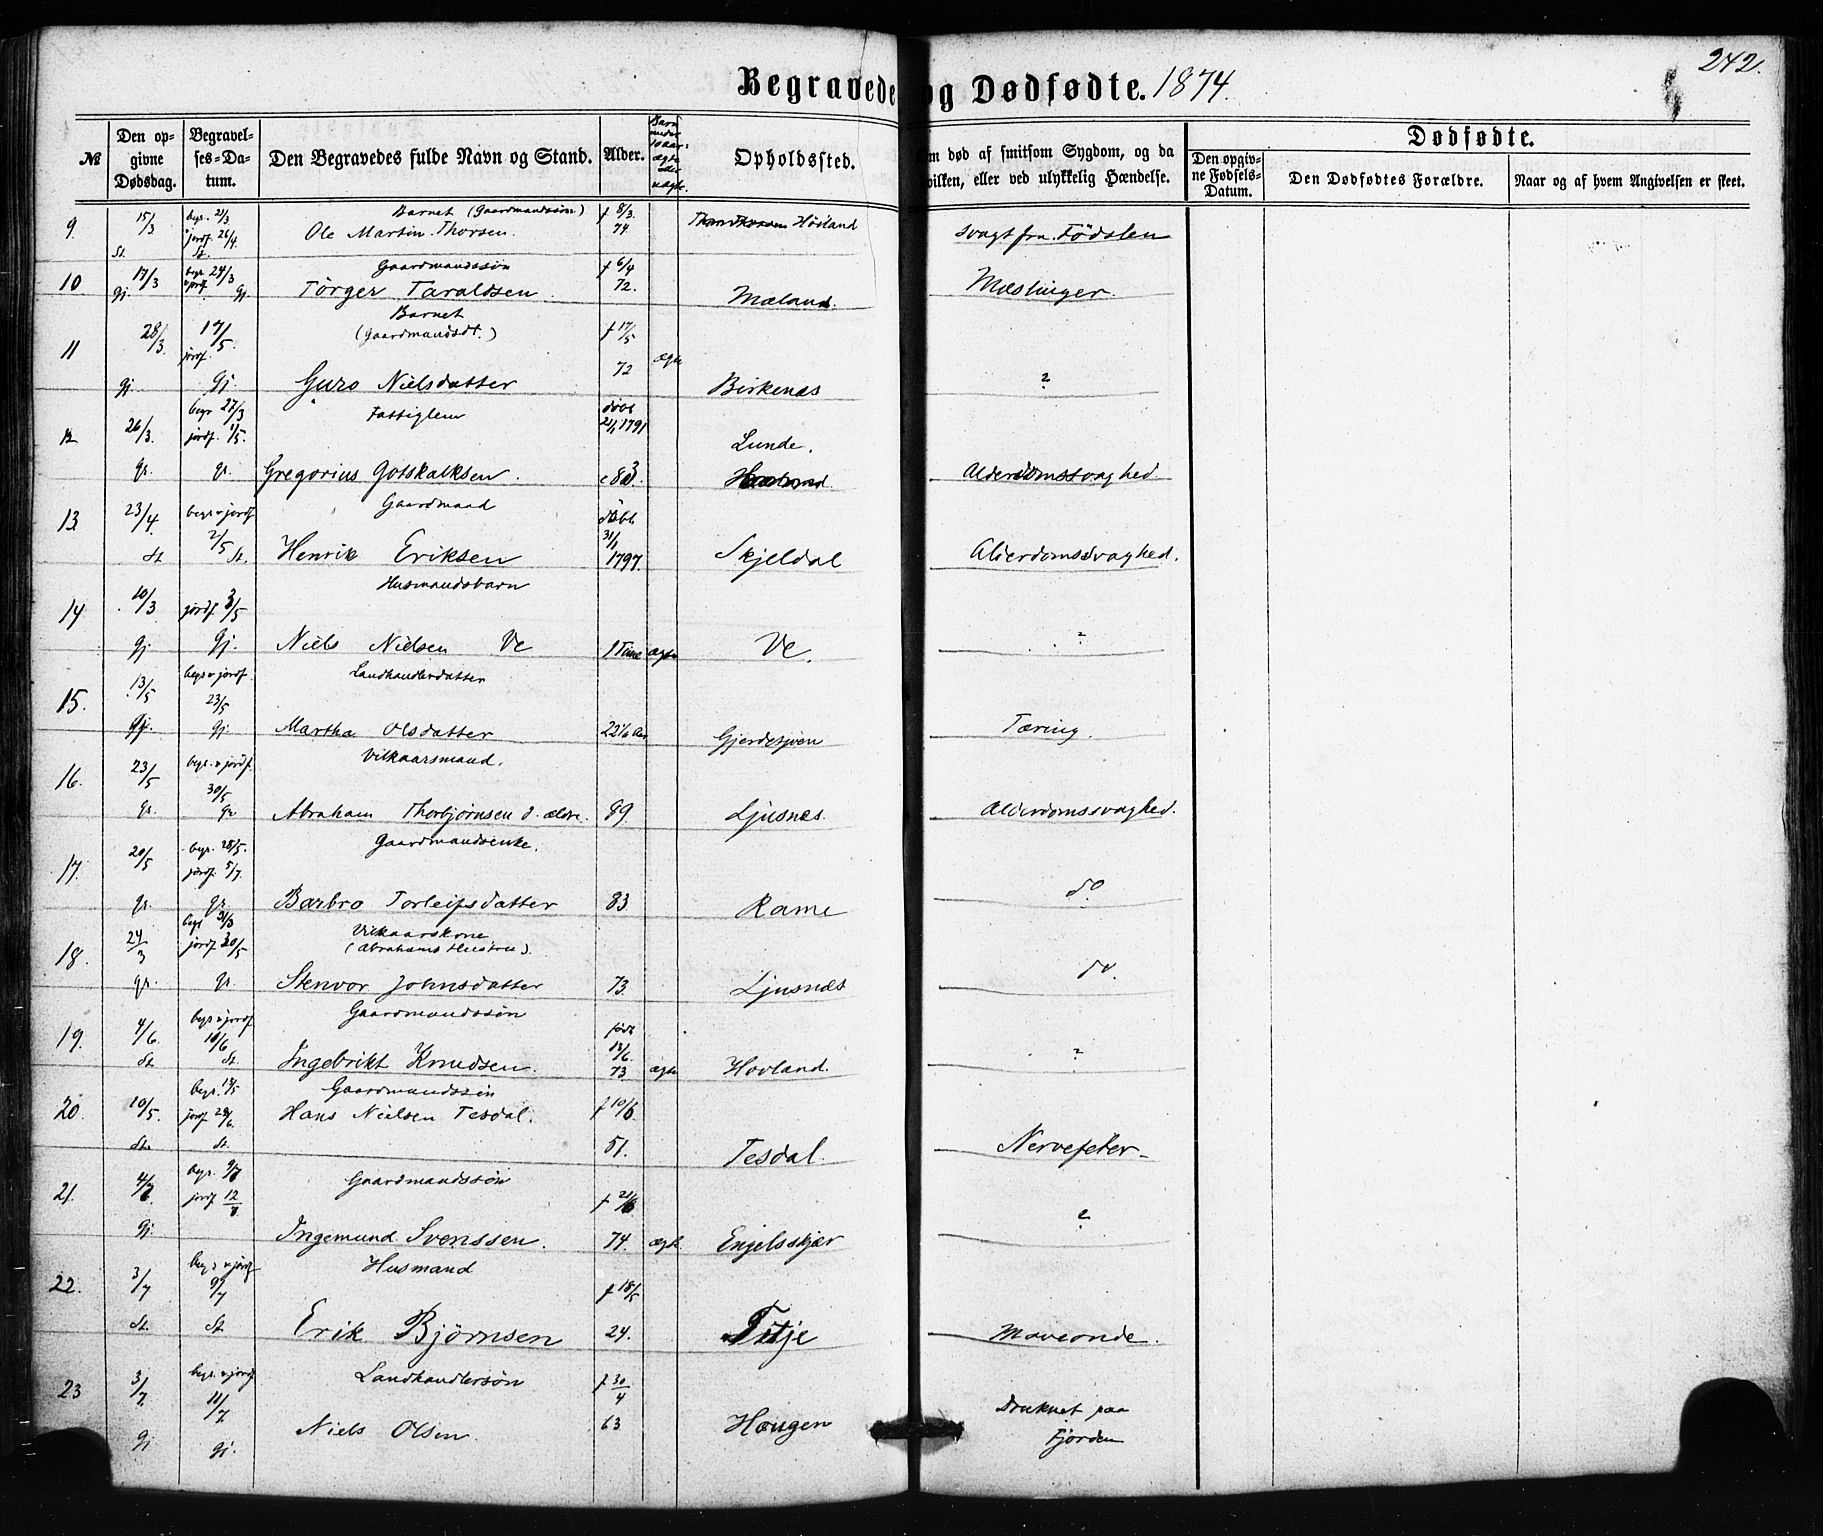 242.
Begravede og Dødfødte. 1874.
№
Den opgivne Dødsdag.
Begravelses-Datum.
Den Begravedes fulde Navn og Stand.
Alder.
Barn under 10 aar: ægte eller uægte.
Opholdssted.
om død af smitsom Sygdom, og da
hvilken, eller ved ulykkelig Hændelse.
Dødfødte.
Den opgivne Fødsels-Datum.
Den Dødfødtes Forældre.
Naar og af hvem Angivelsen er skeet.
9. 15/3 St. begr. 21/3 jordf. 26/4 St. Barnet (Gaardmandssøn) f 8/3 74.
Ole Martin Thorsen. Høvland svagt fra Fødslen
10 17/3 gj. begr. 24/3 jordf. gj. Gaardmandssøn f 6/4 72.
Törger Taraldsen. Mæland. Mæslinger.
11 28/3. gj. 17/5. jordf. gj. Barnet (Gaardmandsdt.) f 17/5 72 ægte
Guro Nielsdatter Birkenæs ?
12 26/3. gr. begr 27/3 jordf. 1/5. gr. Fattiglem døbt 21/1 1791
Gregorius Gotskalksen. Lunde. Alderdomssvaghed
13. 23/4. St begr. & jordf. 2/5 St. Gaardmand døbt 31/1 1797.
Henrik Eriksen Skjeldal Alderdomssvaghed.
14 10/3 gj. jordf. 3/5 gj. Husmandsbarn
Niels Nielsen Ve 1 Time ægte Ve. ?
15. 13/5 gj. begr & jordf. 23/5 gj. Landhandlerdatter
Martha Olsdatter 22 1/6 Aar Gjerdesjøen Tæring.
16. 23/5 gr. begr. & jordf. 30/5 gr Vilkaarsmand.
Abraham Thorbjørnsen d. ældre. 89 Ljusnes. Alderdomssvaghed.
17. 20/5 gr. begr. 28/5. jordf. 5/7. gr. Gaardmandsenke.
Barbro Torleifsdatter 83 Rame do.
18. 24/3 gr. begr 31/3 jordf 30/5 gr. Vilkaarskone
(Abrahams Hustru).
Stenvor Johnsdatter 73. Ljusnæs do.
19. 4/6. St begr & jordf 10/6 St. Gaardmandssøn født 13/6. 73
Ingebrikt Knudsen. ægte Hovland. ?
20. 10/5. St. begr. jordf St. Gaardmandssøn
Hans Nielsen Tesdal. f 10/6 51. Tesdal. Nervefeber
21. gj. begr. jordf Gaardmandssøn
Ingemund Svenssen. 74. ægte. Engelsskjær ?
22. 3/7 St. begr & jordf 9/7 St. Husmand f 18/5
Erik Bjørnsen 24. Titje Maveonde.
23 3/7 gj begr. & jordf 11/7 gj. Landhandlersøn f 30/4
Niels Olsen. 63 Haugen Druknet paa
Fjorden